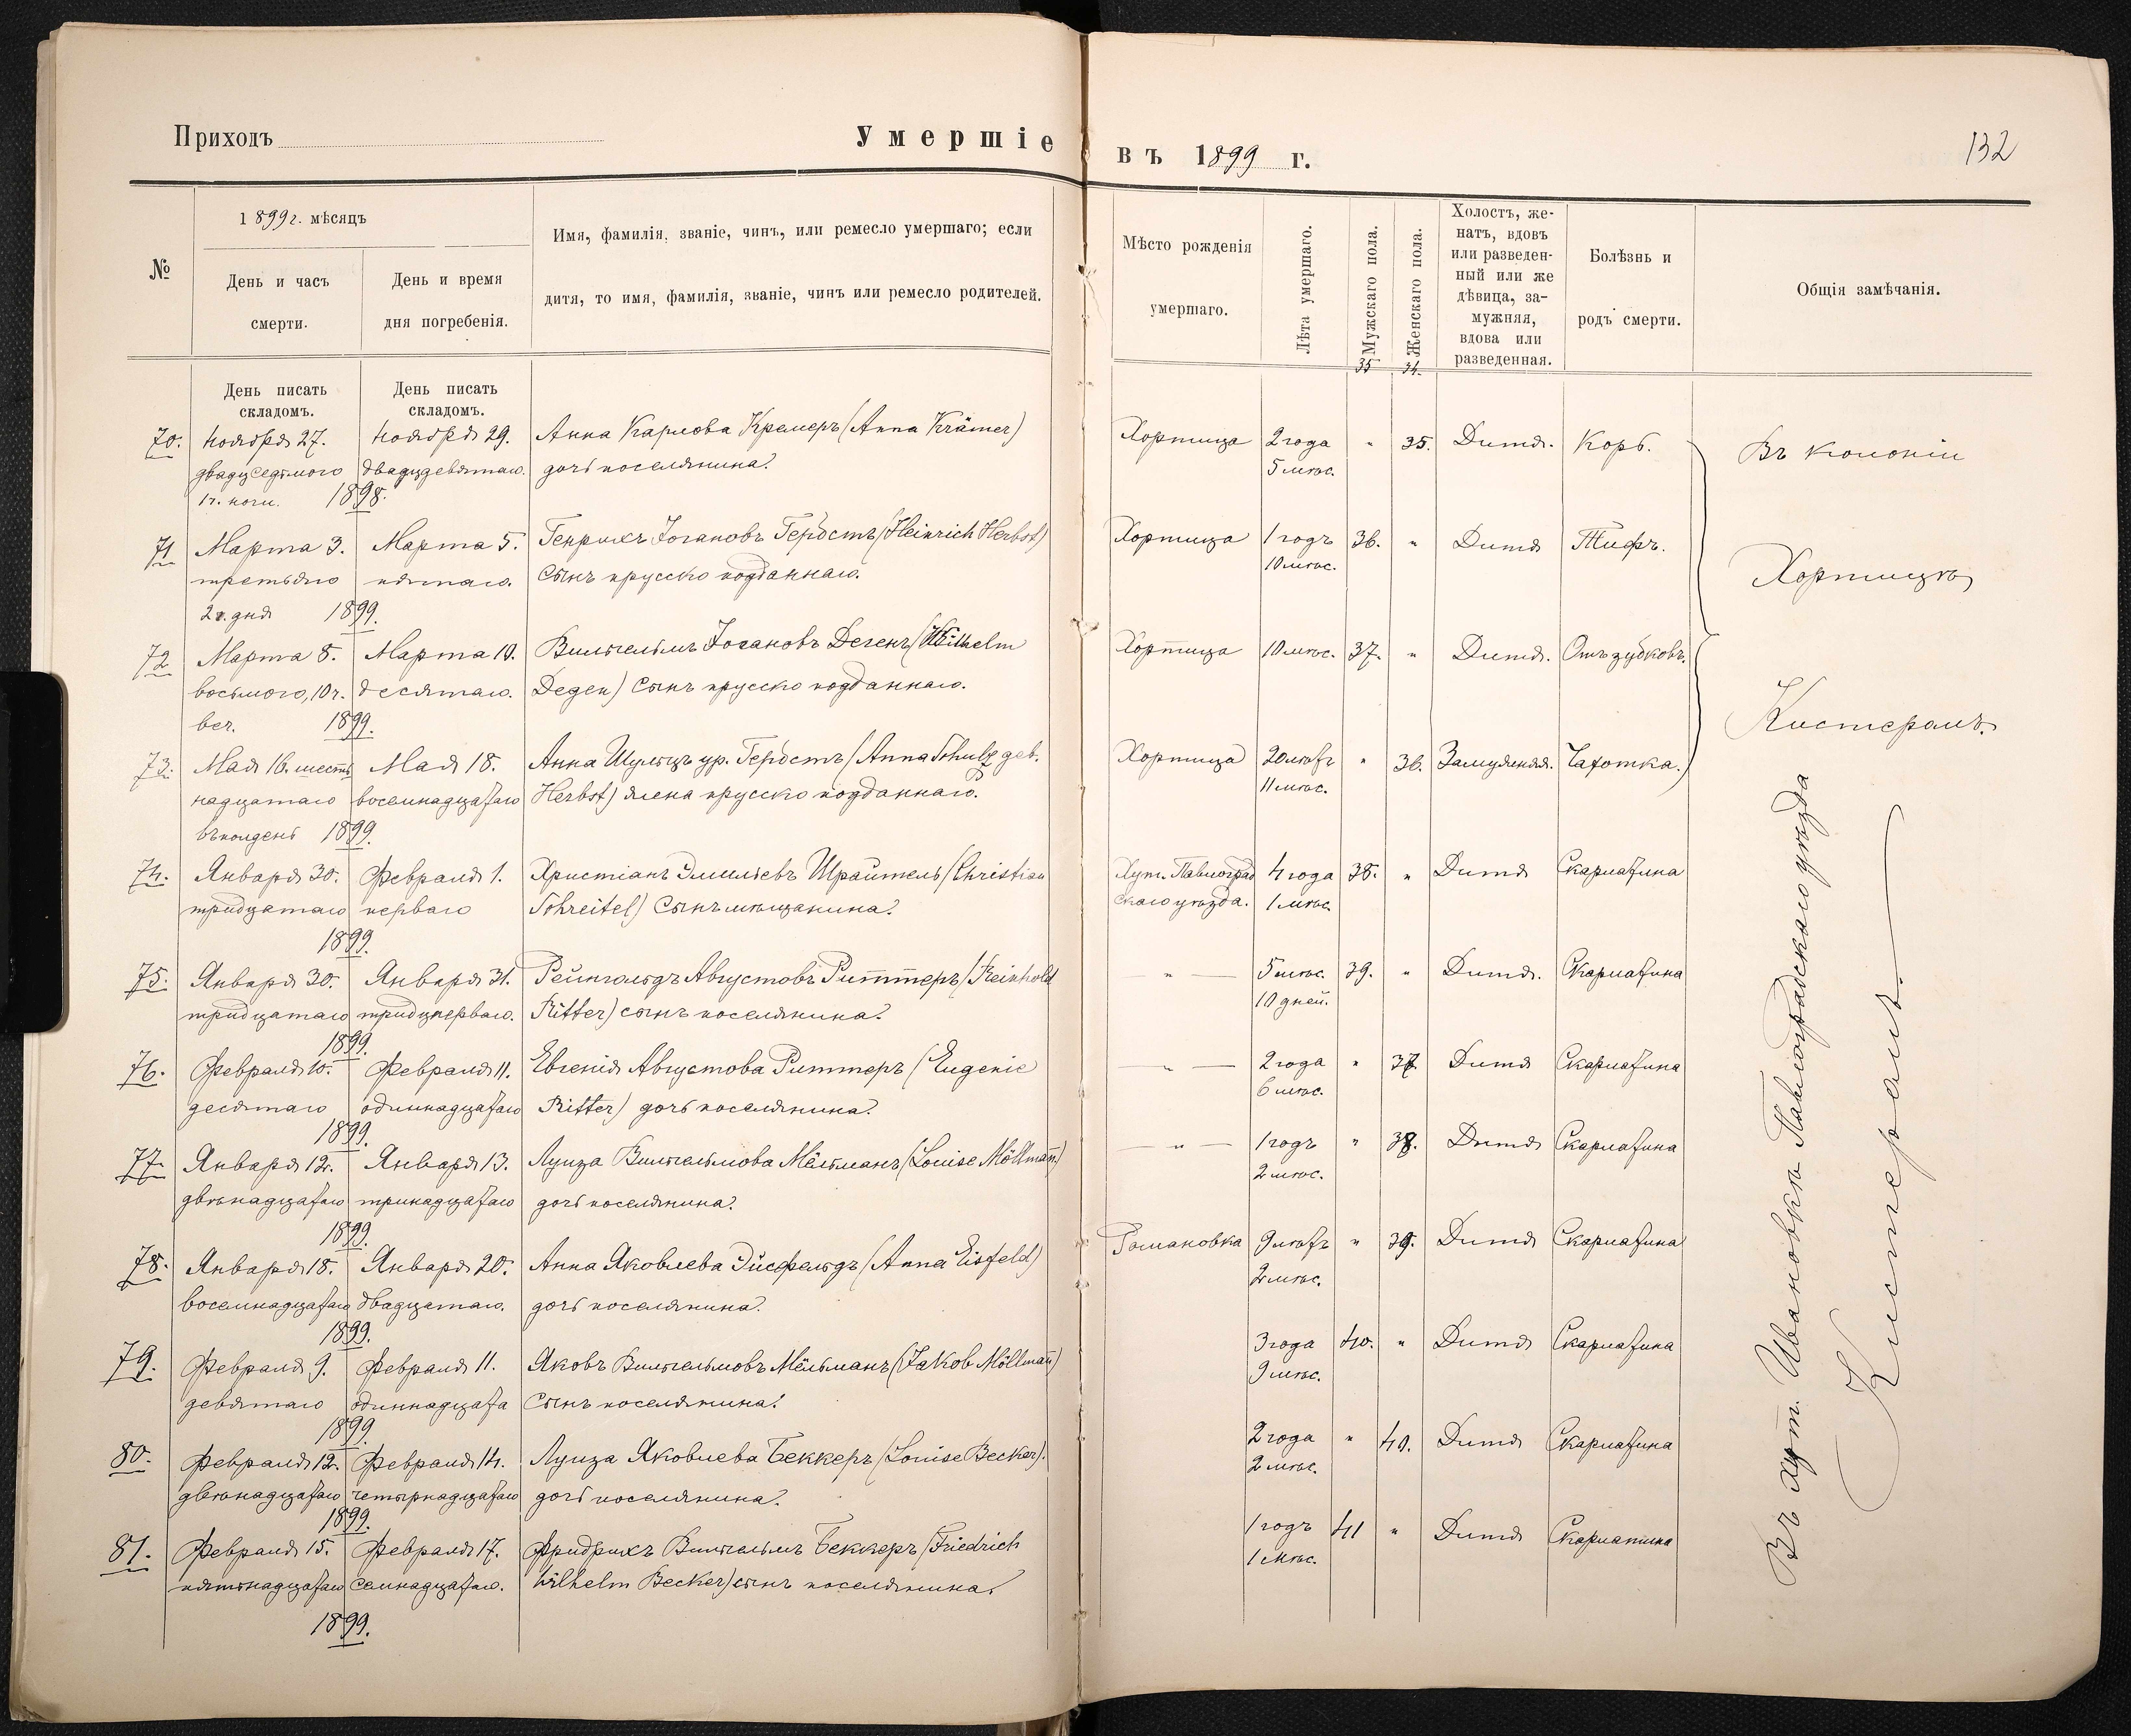 Приходъ
Умершіе
въ 1899 г.
132
№
1899г. мѣсяцъ
День и часъ
смерти.
День и время
дня погребенія.
Имя, фамилія, званіе, чинъ, или ремесло умершаго; если
дитя, то имя, фамилія, званіе, чинъ или ремесло родителей.
Мѣсто рожденія
умершаго.
Лѣта умершаго.
Мужскаго пола.
Женскаго пола.
Холостъ, же-
натъ, вдовъ
или разведен-
ный или же
дѣвица, за-
мужняя,
вдова или
разведенная.
Болѣзнь и
родъ смерти.
Общія замѣчанія.
35 34.
День писать
складомъ.
День писать
складомъ.
70. Ноября 27. Ноября 29. Анна Карлова Кремеръ (Anna Krämer) Хортица 2 года " 35. Дитя. Корь.
двадцседьмого двадцдевятаго. дочь поселянина. 5 мѣс.
1ч. ночи. 1898.
71 Марта 3. Марта 5. Генрихъ Іогановъ Гербстъ (Heinrich Herbst) Хортица 1 годъ 36. " Дитя Тифъ.
третьяго пятаго. Сынъ прусско подданнаго. 10 мѣс.
2ч. дня 1899.
72 Марта 8. Марта 10. Вильгельмъ Іогановъ Дегенъ (Wilhelm Хортица 10 мѣс. 37. " Дитя. Отъ зубковъ.
восьмого, 10ч. десятаго. Degen) Сынъ прусско подданнаго.
веч. 1899.
73. Мая 16. шест Мая 18. Анна Шульцъ ур. Гербстъ (Anna Schulz geb. Хортица 20 лѣтъ " 36. Замужняя. Чахотка.
надцатаго восемнадцатаго Herbst) жена прусско подданнаго. 11 мѣс.
въ полдень 1899.
Въ колоніи
Хортицѣ
Кистеромъ.
74. Января 30. Февраля 1. Христіанъ Эмильевъ Шрайтель (Christian Хут. Павлоград 4 года 38. " Дитя Скарлатина
тридцатаго перваго Schreitel) Сынъ мѣщанина. скаго уѣзда. 1 мѣс.
1899.
75. Января 30. Января 31. Рейнгольдъ Августовъ Риттеръ (Reinhold — " — 5 мѣс. 39. " Дитя. Скарлатина
тридцатаго тридцперваго. Ritter) сынъ поселянина. 10 дней.
1899.
76. Февраля 10. Февраля 11. Евгенія Августова Риттеръ (Eugenie — " — 2 года " 37. Дитя Скарлатина
десятаго одиннадцатаго Ritter) дочь поселянина. 6 мѣс.
1899.
77. Января 12. Января 13. Луиза Вильгельмова Мёльманъ (Louise Möllman̄) — " — 1 годъ " 38. Дитя Скарлатина
двѣнадцатаго тринадцатаго дочь поселянина. 2 мѣс.
1899.
78. Января 18. Января 20. Анна Яковлева Эйсфельдъ (Anna Eisfeld) Романовка 9 лѣтъ " 39. Дитя Скарлатина
восемнадцатаго двадцатаго. дочь поселянина. 2 мѣс.
1899.
79. Февраля 9. Февраля 11. Яковъ Вильгельмовъ Мёльманъ (Jakob Möllman̄) 3 года 40. " Дитя Скарлатина
девятаго одиннадцата Сынъ поселянина. 9 мѣс.
1899.
80. Февраля 12. Февраля 14. Луиза Яковлева Беккеръ (Louise Becker). 2 года " 40. Дитя Скарлатина
двѣнадцатаго четырнадцатаго дочь поселянина. 2 мѣс.
1899.
81. Февраля 15. Февраля 17. Фридрихъ Вильгельмъ Беккеръ (Friedrich 1 годъ 41 " Дитя Скарлатина
пятнадцатаго семнадцатаго. Wilhelm Becker) сынъ поселянина. 1 мѣс.
1899.
Въ хут. Ивановкѣ Павлоградскаго уѣзда
Кистеромъ.